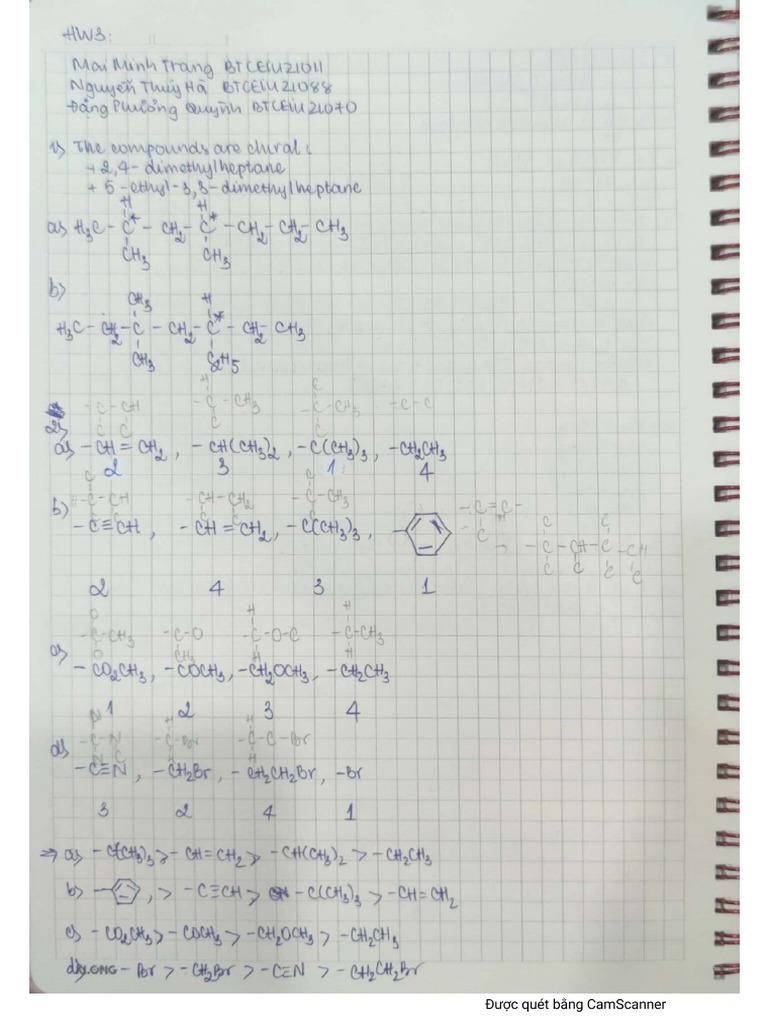 HW3:
Mai Minh Trang BTCEIU21011
Nguyễn Thúy Hà BTCEIU21088
Đặng Phương Quỳnh BTCEIU21070
1) The compounds are chiral:
+ 2,4-dimethylheptane
+ 5-ethyl-3,3-dimethylheptane
H H
a) H₃C - C* - CH₂ - C* - CH₂ - CH₂ - CH₃
CH₃ CH₃
b)
CH₃ H
H₃C - CH₂ - C - CH₂ - C* - CH₂ - CH₃
CH₃ C₂H₅
2)
a) -CH=CH₂, -CH(CH₃)₂, -C(CH₃)₃, -CH₂CH₃
2 3 1 4
b) -C≡CH, -CH=CH₂, -C(CH₃)₃,
2 4 3 1
-C-CH₃ -C-O -C-O-C -C-CH₃
-CO₂CH₃, -COCH₃, -CH₂OCH₃, -CH₂CH₃
1 2 3 4
d) -C≡N, -CH₂Br, -CH₂CH₂Br, -Br
3 2 4 1
=> a) -C(CH₃)₃ > -CH=CH₂ > -CH(CH₃)₂ > -CH₂CH₃
b) , > -C≡CH > -C(CH₃)₃ > -CH=CH₂
c) -CO₂CH₃ > -COCH₃ > -CH₂OCH₃ > -CH₂CH₃
d) KLONG -Br > -CH₂Br > -C≡N > -CH₂CH₂Br
Được quét bằng CamScanner